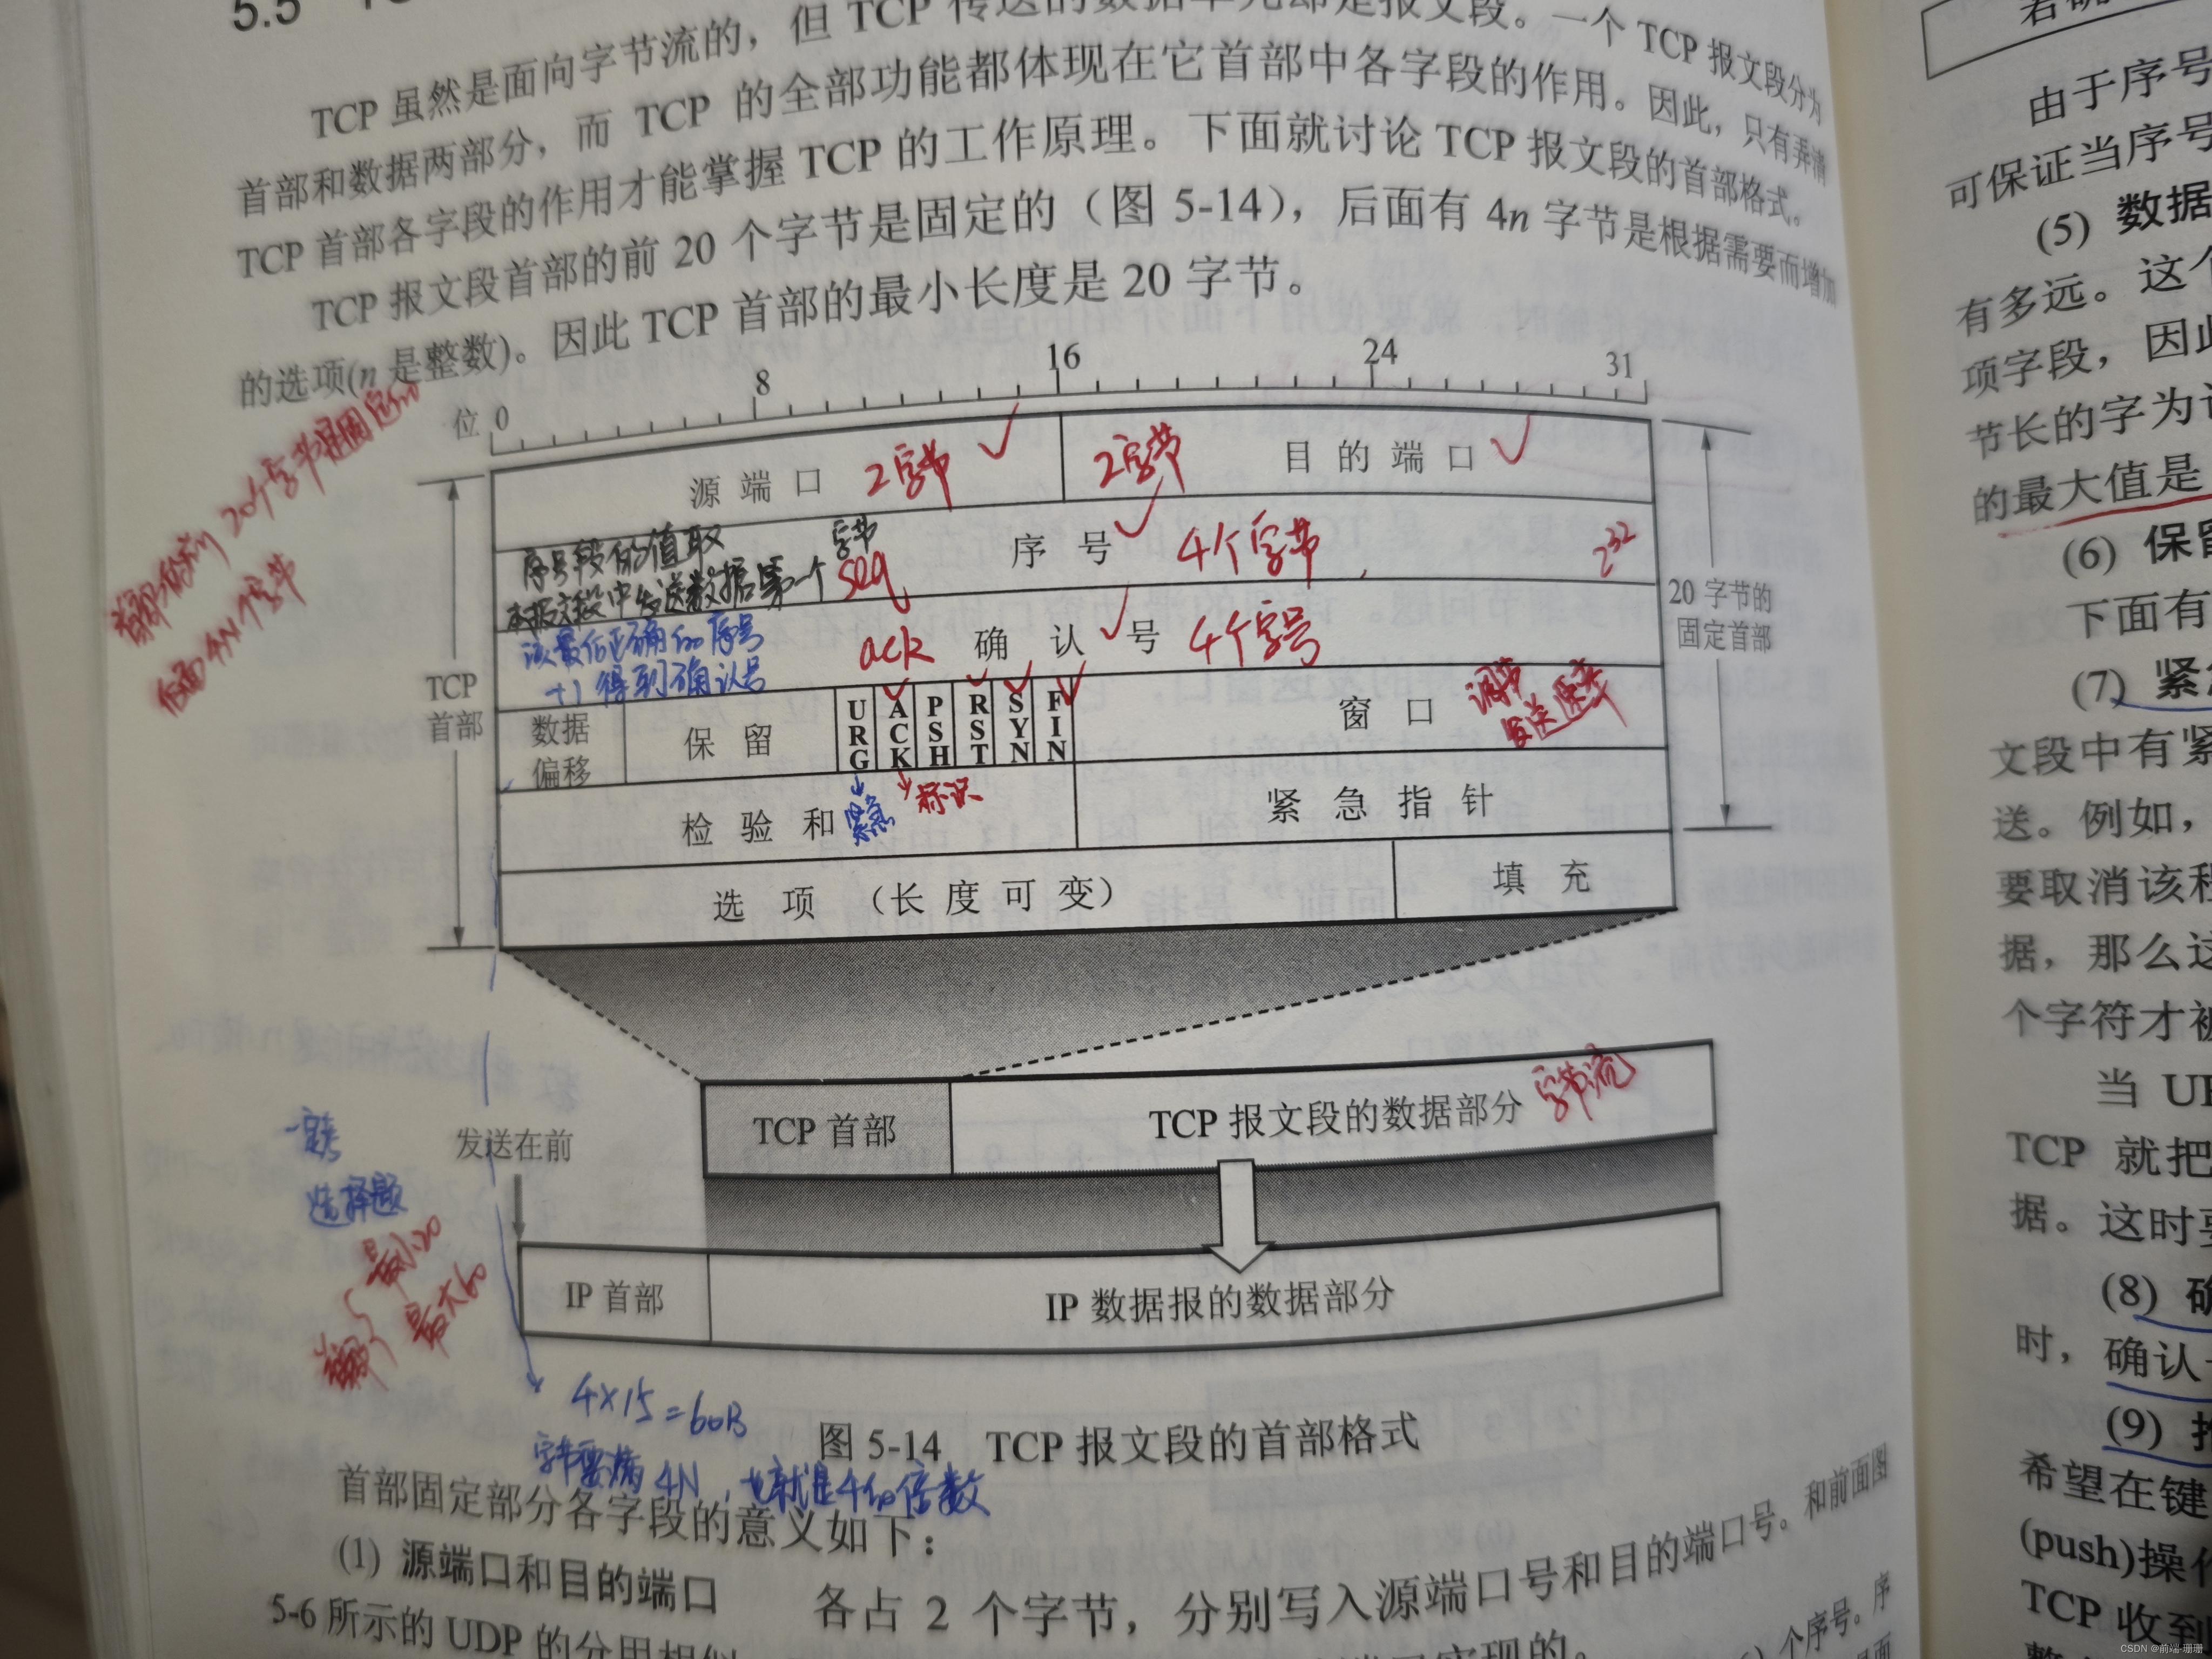 5.5
TCP 虽然是面向字节流的，但 TCP 传送的数据单元却是报文段。一个 TCP 报文段分为
首部和数据两部分，而 TCP 的全部功能都体现在它首部中各字段的作用。因此，只有弄清
TCP 首部各字段的作用才能掌握 TCP 的工作原理。下面就讨论 TCP 报文段的首部格式。
TCP 报文段首部的前 20 个字节是固定的（图 5-14），后面有 4n 字节是根据需要而增加
的选项(n 是整数)。因此 TCP 首部的最小长度是 20 字节。
20个字节是固定的
后面4N个字节
位 0 8 16 24 31
源端口 2字节 2字节 目的端口
序号段的值取 字节
本报文段中发送数据第一个 seq 序号 4个字节 2^32
该最后正确的序号
+1 得到确认号 ack 确认号 4个字号
TCP
首部
20 字节的
固定首部
数据
偏移
保留 URG ACK PSH RST SYN FIN 窗口 调节
发送速率
检验和 紧急 标识 紧急指针
选项（长度可变） 填充
TCP 首部 TCP 报文段的数据部分 字节流
发送在前
选择题
IP 首部 IP 数据报的数据部分
最小20
最大60
4×15=60B
图 5-14 TCP 报文段的首部格式
字节要满 4N，也就是4的倍数
首部固定部分各字段的意义如下：
(1) 源端口和目的端口 各占 2 个字节，分别写入源端口号和目的端口号。和前面图
5-6 所示的 UDP 的分用相似
实现的。
个序号。序
由于序号
可保证当序号
(5) 数据
有多远。这个
项字段，因此
节长的字为
的最大值是
(6) 保留
下面有
(7) 紧急
文段中有紧
送。例如，
要取消该程
据，那么这
个字符才被
当 UR
TCP 就把
据。这时要
(8) 确
时，确认
(9) 推
希望在键
(push)操作
TCP 收到
CSDN @前端-珊珊